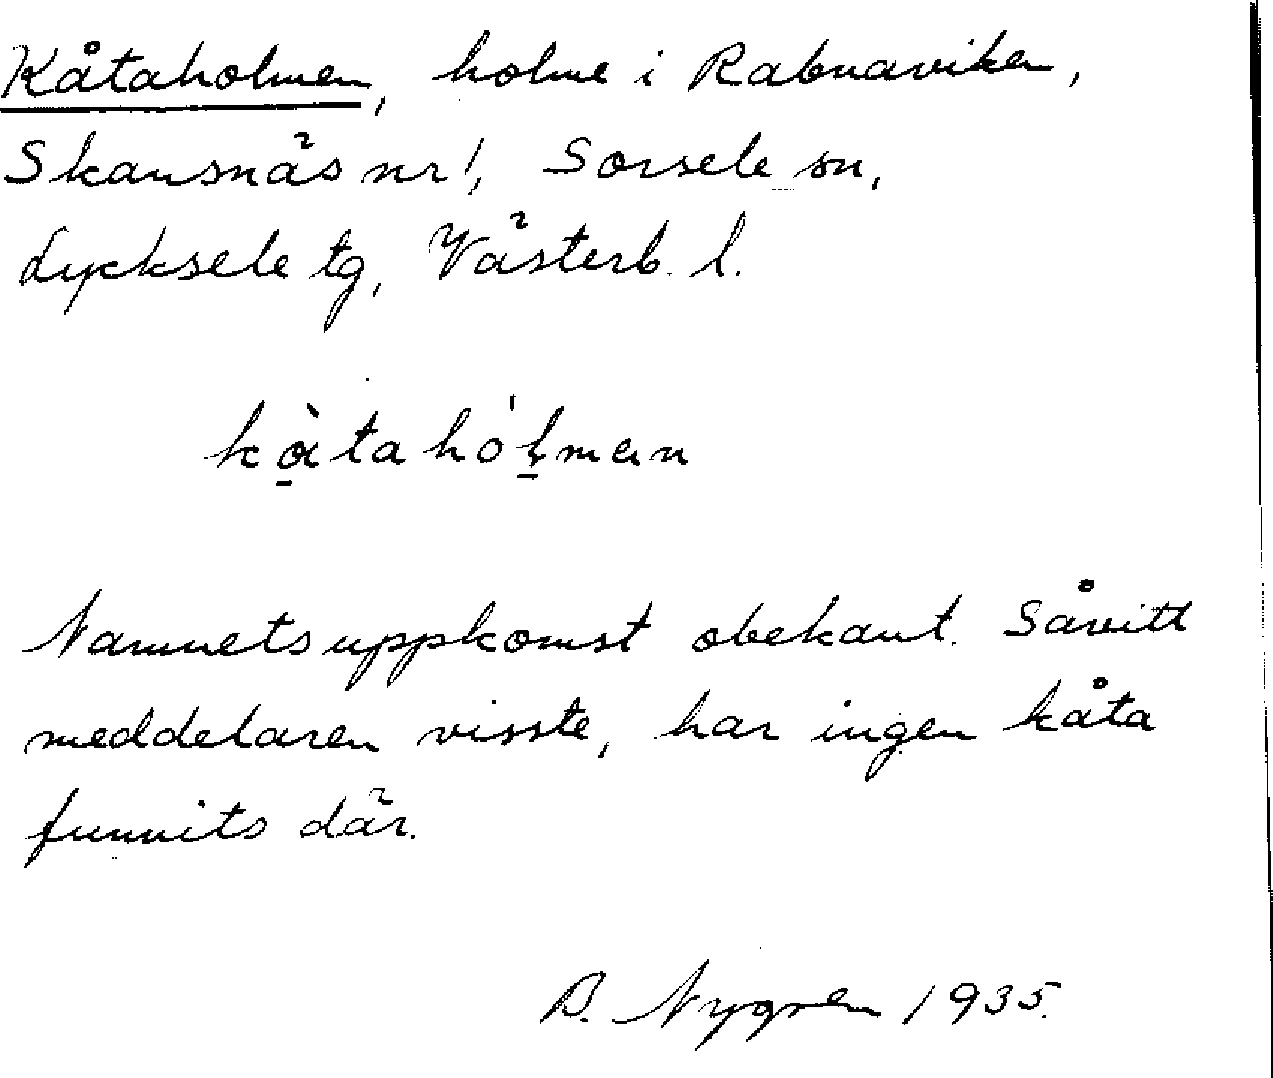 Kåtaholmen, holme i Rabnaviken,
Skansnäs nr 1, Sorsele sn,
Lycksele tg, Västerb. l.
kàtahól̠man
Namnets uppkomst obekant. Såvitt
meddelaren visste, har ingen kåta
funnits där.
B. Nygren 1935.